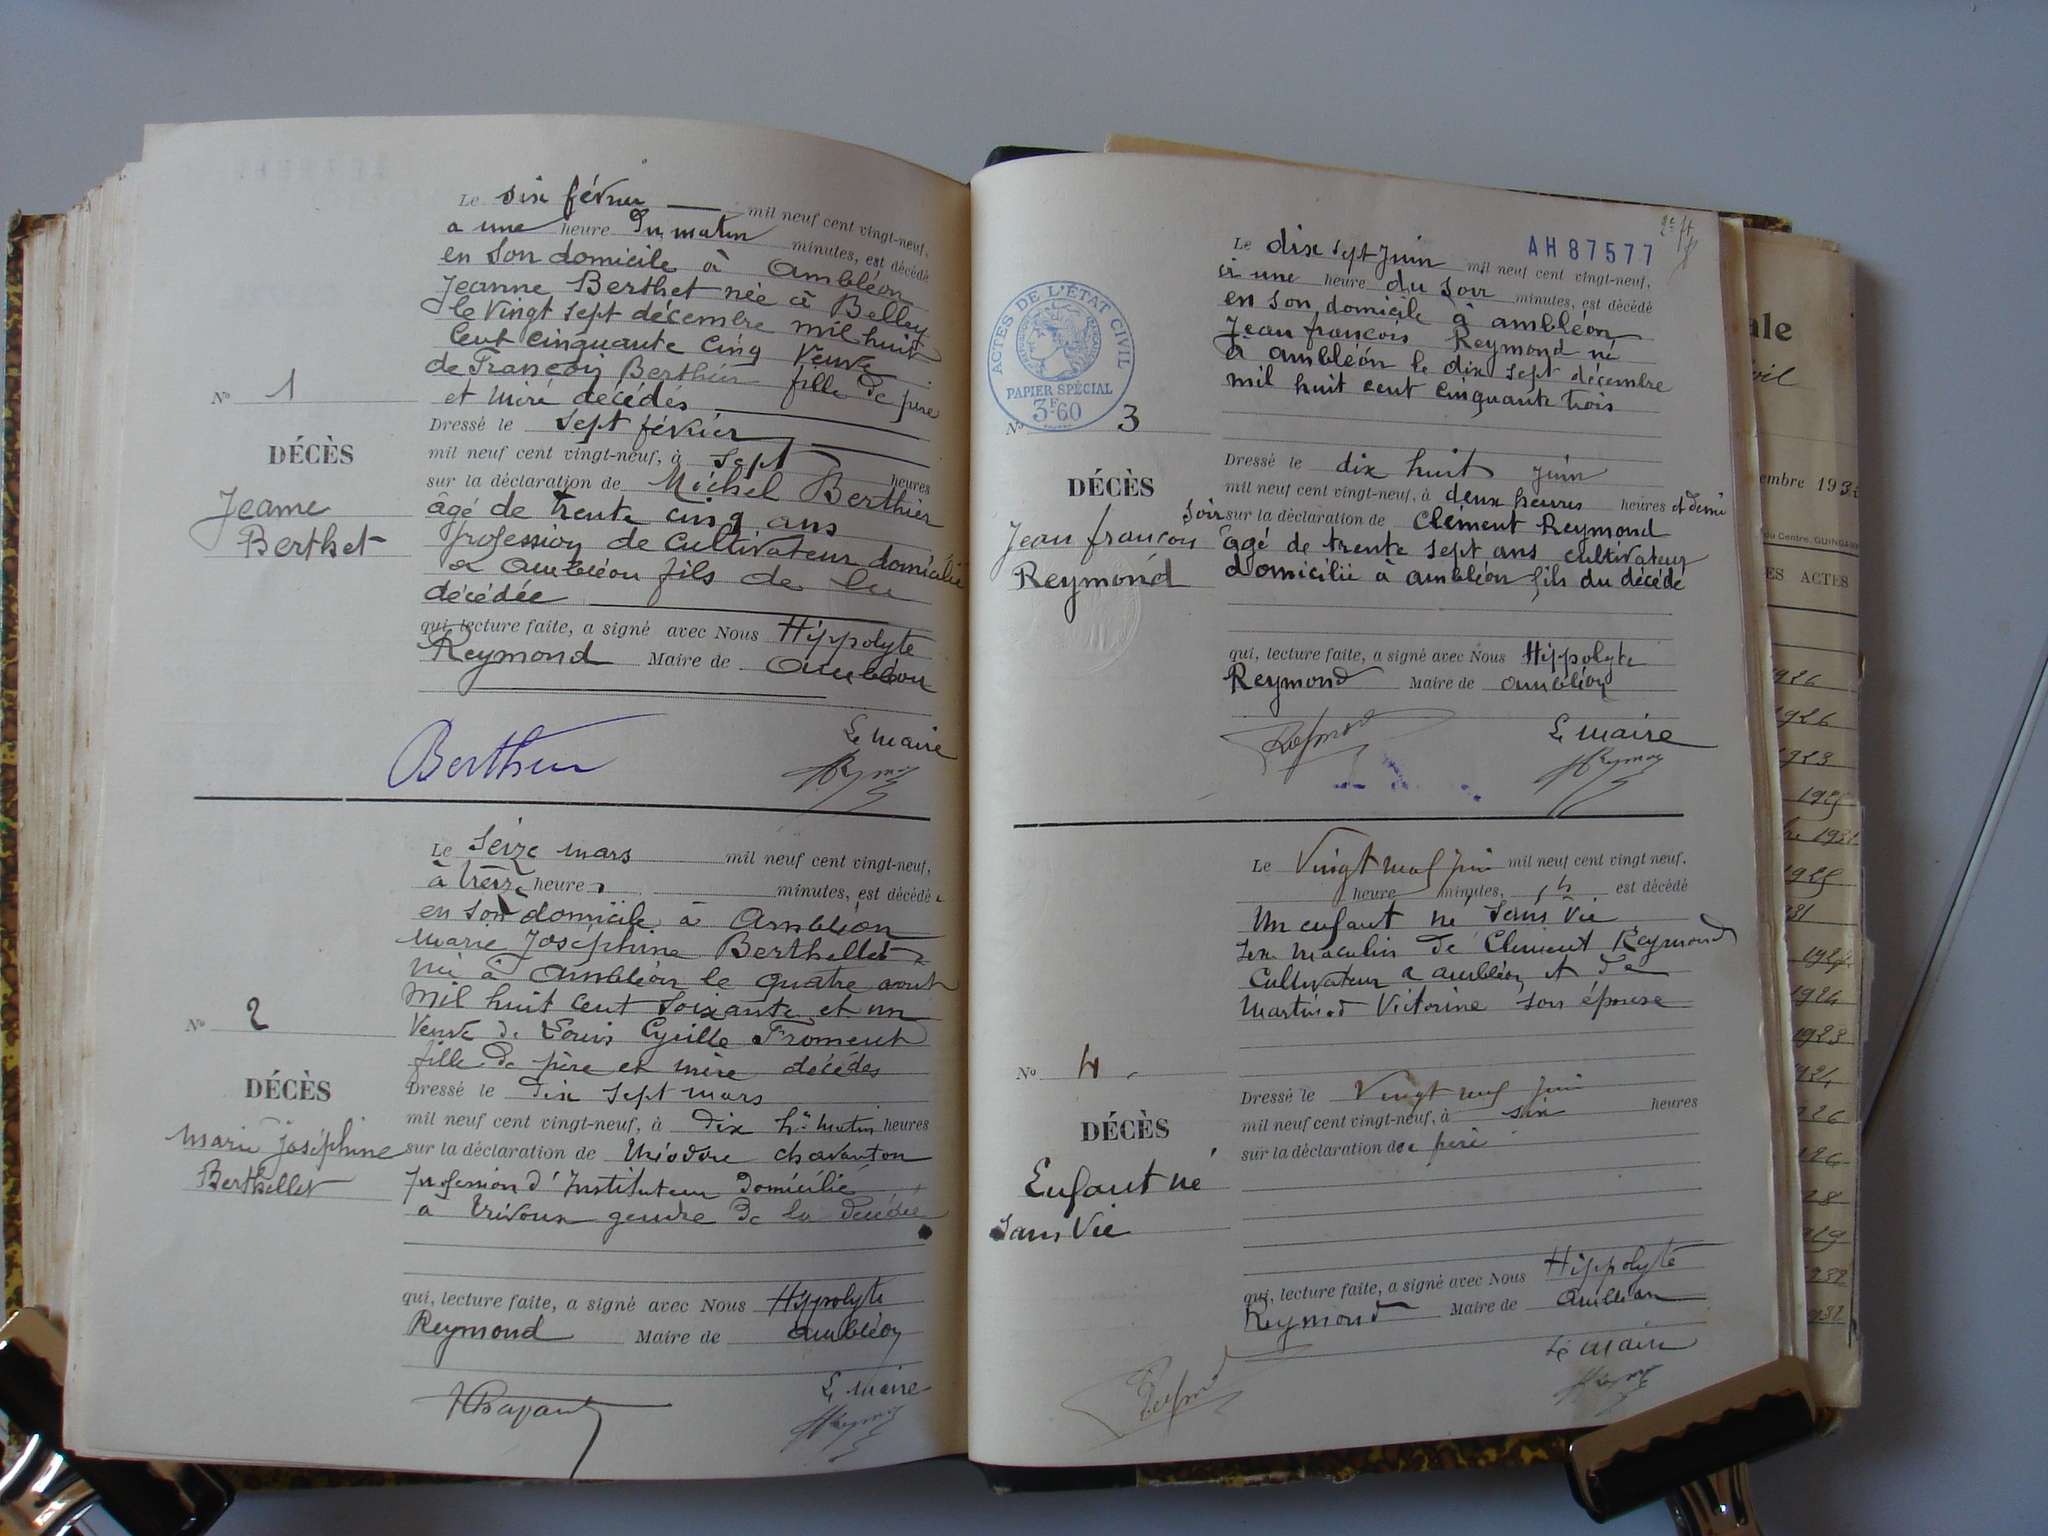 Le six février mil neuf cent vingt-neuf,
a une heure du matin minutes, est décédé
en son domicile à Ambléon
Jeanne Berthet née à Belley
le vingt sept décembre mil huit
cent cinquante cinq veuve
de François Berthier fille de père
et mère décédés
N° 1
DÉCÈS
Jeanne
Berthet
Dressé le sept février
mil neuf cent vingt-neuf, à sept heures
sur la déclaration de Michel Berthier
âgé de trente cinq ans
profession de cultivateur domicilié
a Ambléon fils de la
décédée
qui, lecture faite, a signé avec Nous Hippolyte
Reymond Maire de Ambléon
Le Maire
Berthier
Le seize mars mil neuf cent vingt-neuf,
à treize heures minutes, est décédée
en son domicile à Ambléon
Marie Joséphine Berthellet
né à Ambléon le quatre aout
mil huit cent soixante et un
veuve de Louis Cyrille Froment
fille de père et mère décédés
N° 2
DÉCÈS
Marie Joséphine
Berthellet
Dressé le dix sept mars
mil neuf cent vingt-neuf, à dix h. matin heures
sur la déclaration de Théodore Chavanton
profession d'Instituteur domicilié
a Trévoux gendre de la décédée
qui, lecture faite, a signé avec Nous Hippolyte
Reymond Maire de Ambléon
Le Maire
AH87577
Le dix sept juin mil neuf cent vingt-neuf,
à une heure du soir minutes, est décédé
en son domicile à ambléon
Jean françois Reymond né
à ambléon le dix sept décembre
mil huit cent cinquante trois
ACTES DE L'ÉTAT CIVIL
PAPIER SPÉCIAL
3F60
N° 3
DÉCÈS
Jean françois
Reymond
Dressé le dix huit juin
mil neuf cent vingt-neuf, à deux heures heures et demi
soir sur la déclaration de Clément Reymond
âgé de trente sept ans cultivateur
domicilié à ambléon fils du décédé
qui, lecture faite, a signé avec Nous Hippolyte
Reymond Maire de ambléon
Le Maire
Le Vingt neuf juin mil neuf cent vingt neuf,
heure minutes, est décédé
Un enfant né sans vie
sexe masculin de Clément Reymond
cultivateur a ambléon et de
Martinod Victorine son épouse
N° 4
DÉCÈS
Enfant né
sans vie
Dressé le Vingt neuf juin
mil neuf cent vingt-neuf, à six heures
sur la déclaration du père
qui, lecture faite, a signé avec Nous Hippolyte
Reymond Maire de ambléon
Le Maire
ale
embre 193
du Centre, GUINGAMP
ES ACTES
1926
1926
1923